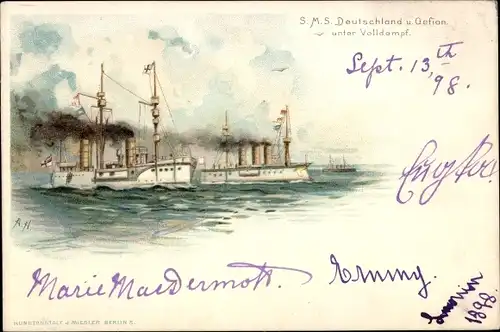 S.M.S. Deutschland u. Gefion
unter Volldampf.
Sept. 13th
98.
A.H
Marie MacDermott.
Emmy.
1898.
KUNSTANSTALT J. MIESLER BERLIN S.